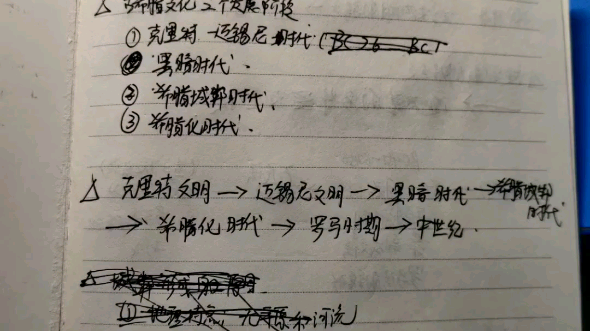 △ 希腊文化 三个发展阶段
① 克里特 迈锡尼时代 (BC26 BC1
黑暗时代.
② 希腊城邦时代.
③ 希腊化时代.
△ 克里特文明 → 迈锡尼文明 → 黑暗时代 → 希腊城邦时代
→ 希腊化时代 → 罗马时期 → 中世纪.